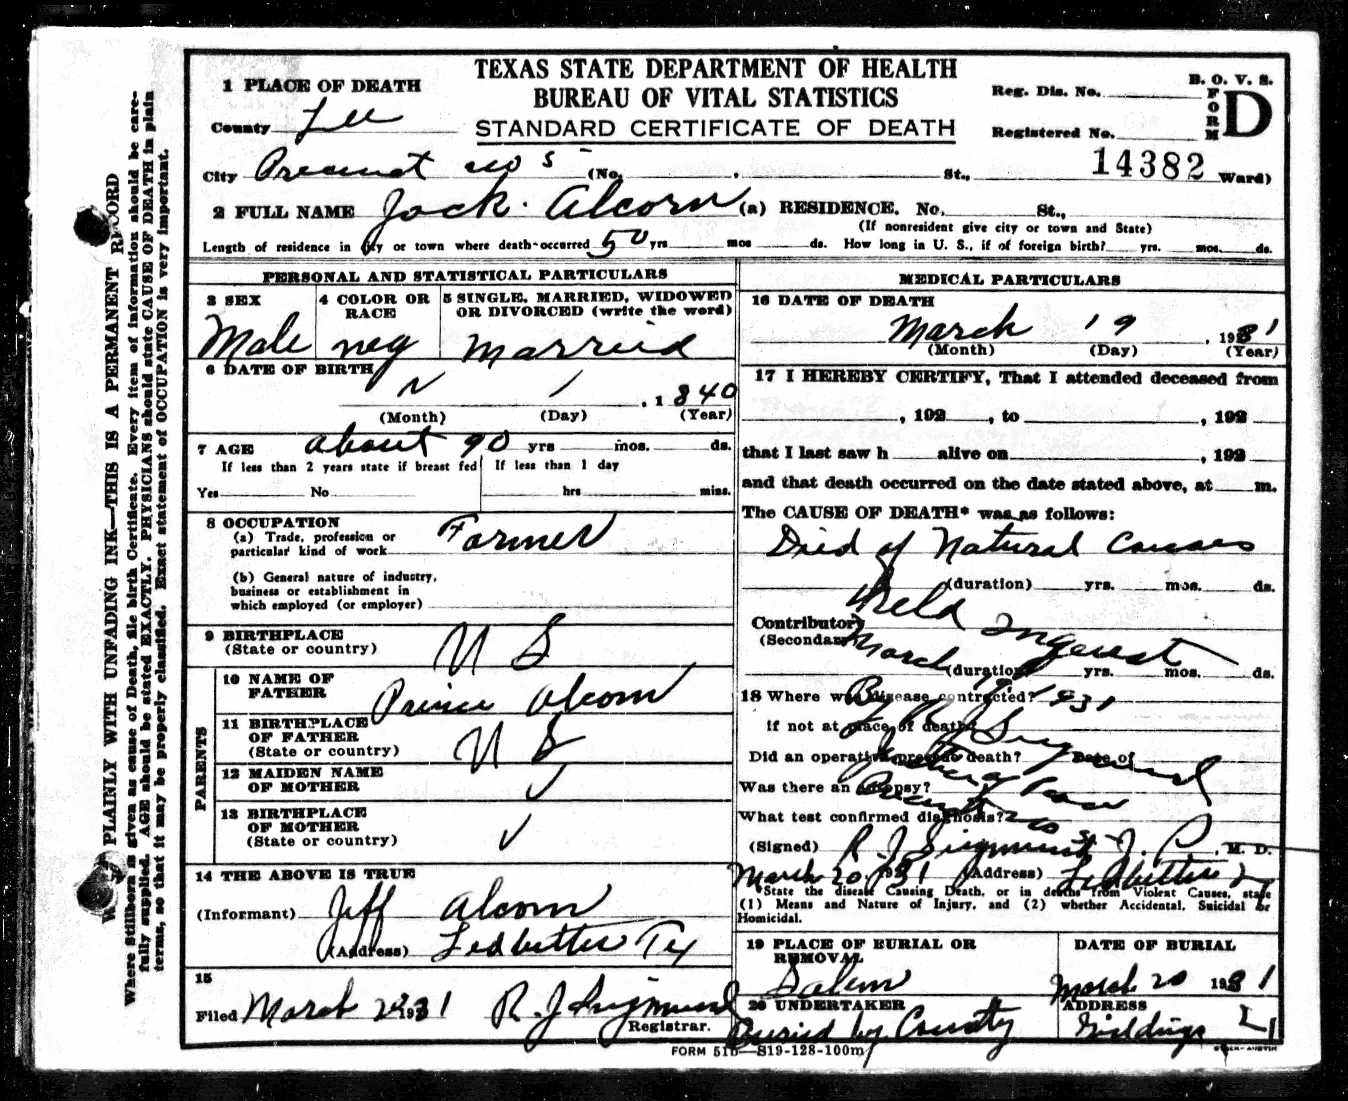 TEXAS STATE DEPARTMENT OF HEALTH
BUREAU OF VITAL STATISTICS
STANDARD CERTIFICATE OF DEATH
B. O. V. S.
FORM D
Reg. Dis. No.
Registered No.
14382
1 PLACE OF DEATH
County Lee
City Precinct No 5 (No. St., Ward)
2 FULL NAME Jack Alcorn (a) RESIDENCE. No. St.,
(If nonresident give city or town and State)
Length of residence in city or town where death occurred 50 yrs mos ds. How long in U. S., if of foreign birth? yrs. mos. ds.
PERSONAL AND STATISTICAL PARTICULARS
3 SEX
Male
4 COLOR OR RACE
neg
5 SINGLE, MARRIED, WIDOWED OR DIVORCED (write the word)
Married
6 DATE OF BIRTH
, 1840
(Month) (Day) (Year)
7 AGE about 90 yrs mos. ds.
If less than 2 years state if breast fed If less than 1 day
Yes No hrs mins.
8 OCCUPATION
(a) Trade, profession or
particular kind of work Farmer
(b) General nature of industry,
business or establishment in
which employed (or employer)
9 BIRTHPLACE
(State or country) U S
PARENTS
10 NAME OF
FATHER Prince Alcorn
11 BIRTHPLACE
OF FATHER
(State or country) U S
12 MAIDEN NAME
OF MOTHER ✓
13 BIRTHPLACE
OF MOTHER
(State or country) ✓
14 THE ABOVE IS TRUE
(Informant) Jeff Alcorn
(Address) Ledbetter Tx
15
Filed March 1931 R. J. Siegmund
Registrar.
MEDICAL PARTICULARS
16 DATE OF DEATH
March 19, 1931
(Month) (Day) (Year)
17 I HEREBY CERTIFY, That I attended deceased from
, 192 , to , 192
that I last saw h alive on , 192
and that death occurred on the date stated above, at m.
The CAUSE OF DEATH* was as follows:
Died of Natural Causes
(duration) yrs. mos. ds.
Held Inquest
Contributory
(Secondary)
March 1931
(duration) yrs. mos. ds.
18 Where was disease contracted?
if not at place of death?
By R J Siegmund
Did an operation precede death? Date of
Justice of Peace
Was there an autopsy?
Precinct No 5
What test confirmed diagnosis?
(Signed) R. J. Siegmund J. P., M. D.
March 20, 1931 (Address) Ledbetter
*State the disease Causing Death, or in deaths from Violent Causes, state
(1) Means and Nature of Injury, and (2) whether Accidental, Suicidal or
Homicidal.
19 PLACE OF BURIAL OR
REMOVAL
Salem
DATE OF BURIAL
March 20 1931
20 UNDERTAKER
Buried by County
ADDRESS
Giddings
FORM 51b—819-128-100m
WRITE PLAINLY WITH UNFADING INK—THIS IS A PERMANENT RECORD
Where Stillborn is given as cause of Death, file birth Certificate. Every item of information should be care-
fully supplied. AGE should be stated EXACTLY. PHYSICIANS should state CAUSE OF DEATH in plain
terms, so that it may be properly classified. Exact statement of OCCUPATION is very important.